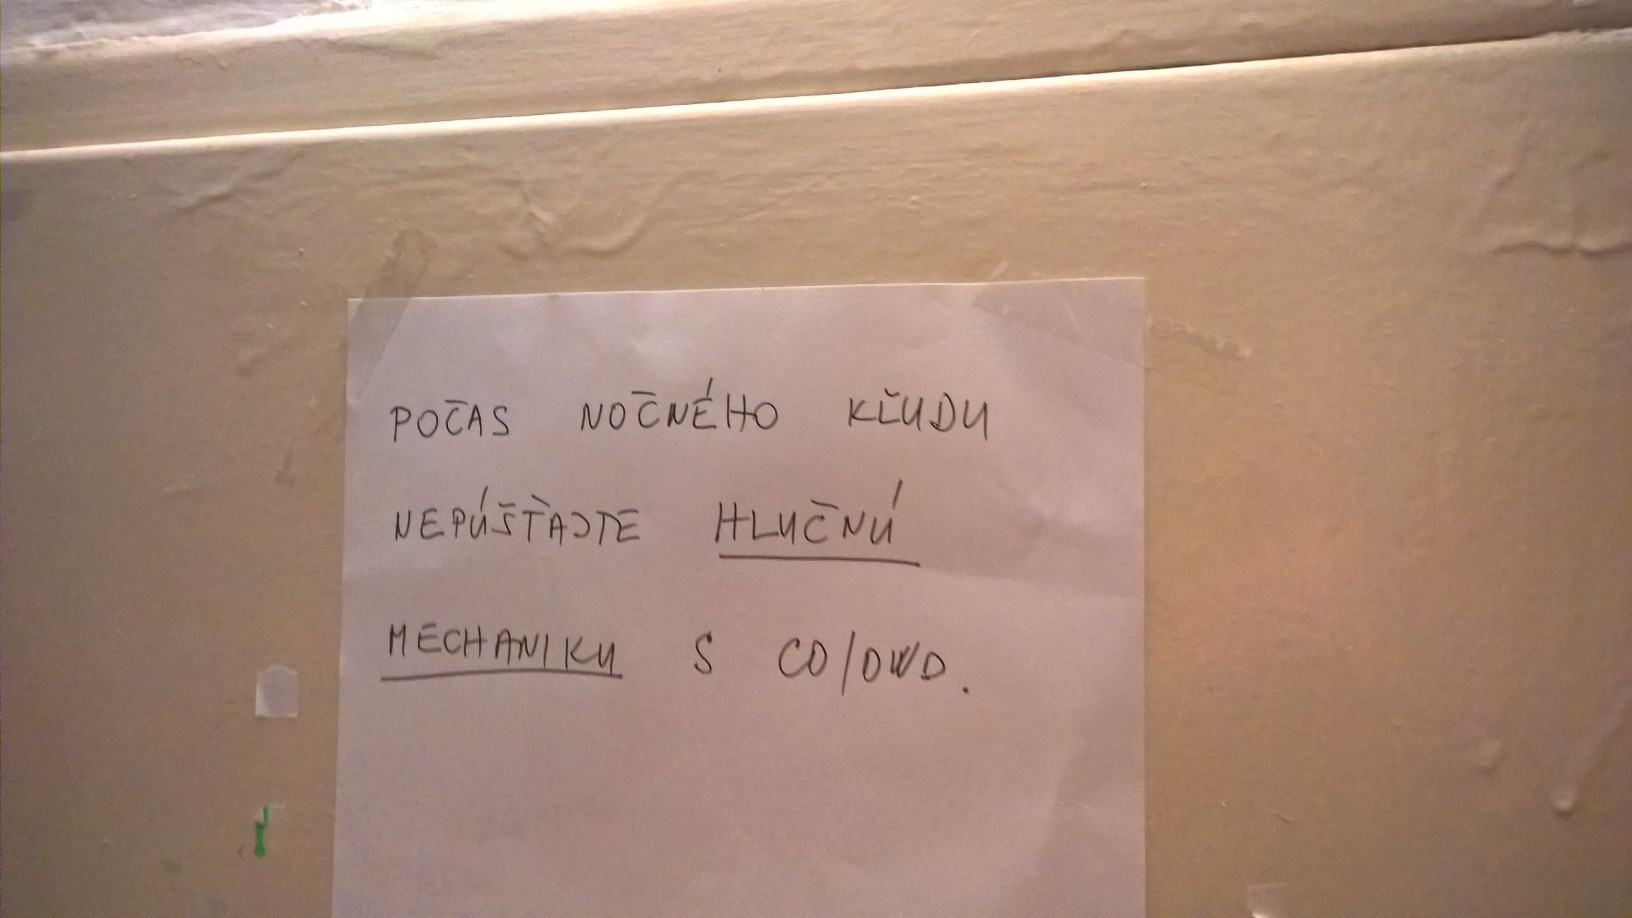 POČAS NOČNÉHO KĽUDU
NEPÚŠŤAJTE HLUČNÚ
MECHANIKU S CD/DVD.